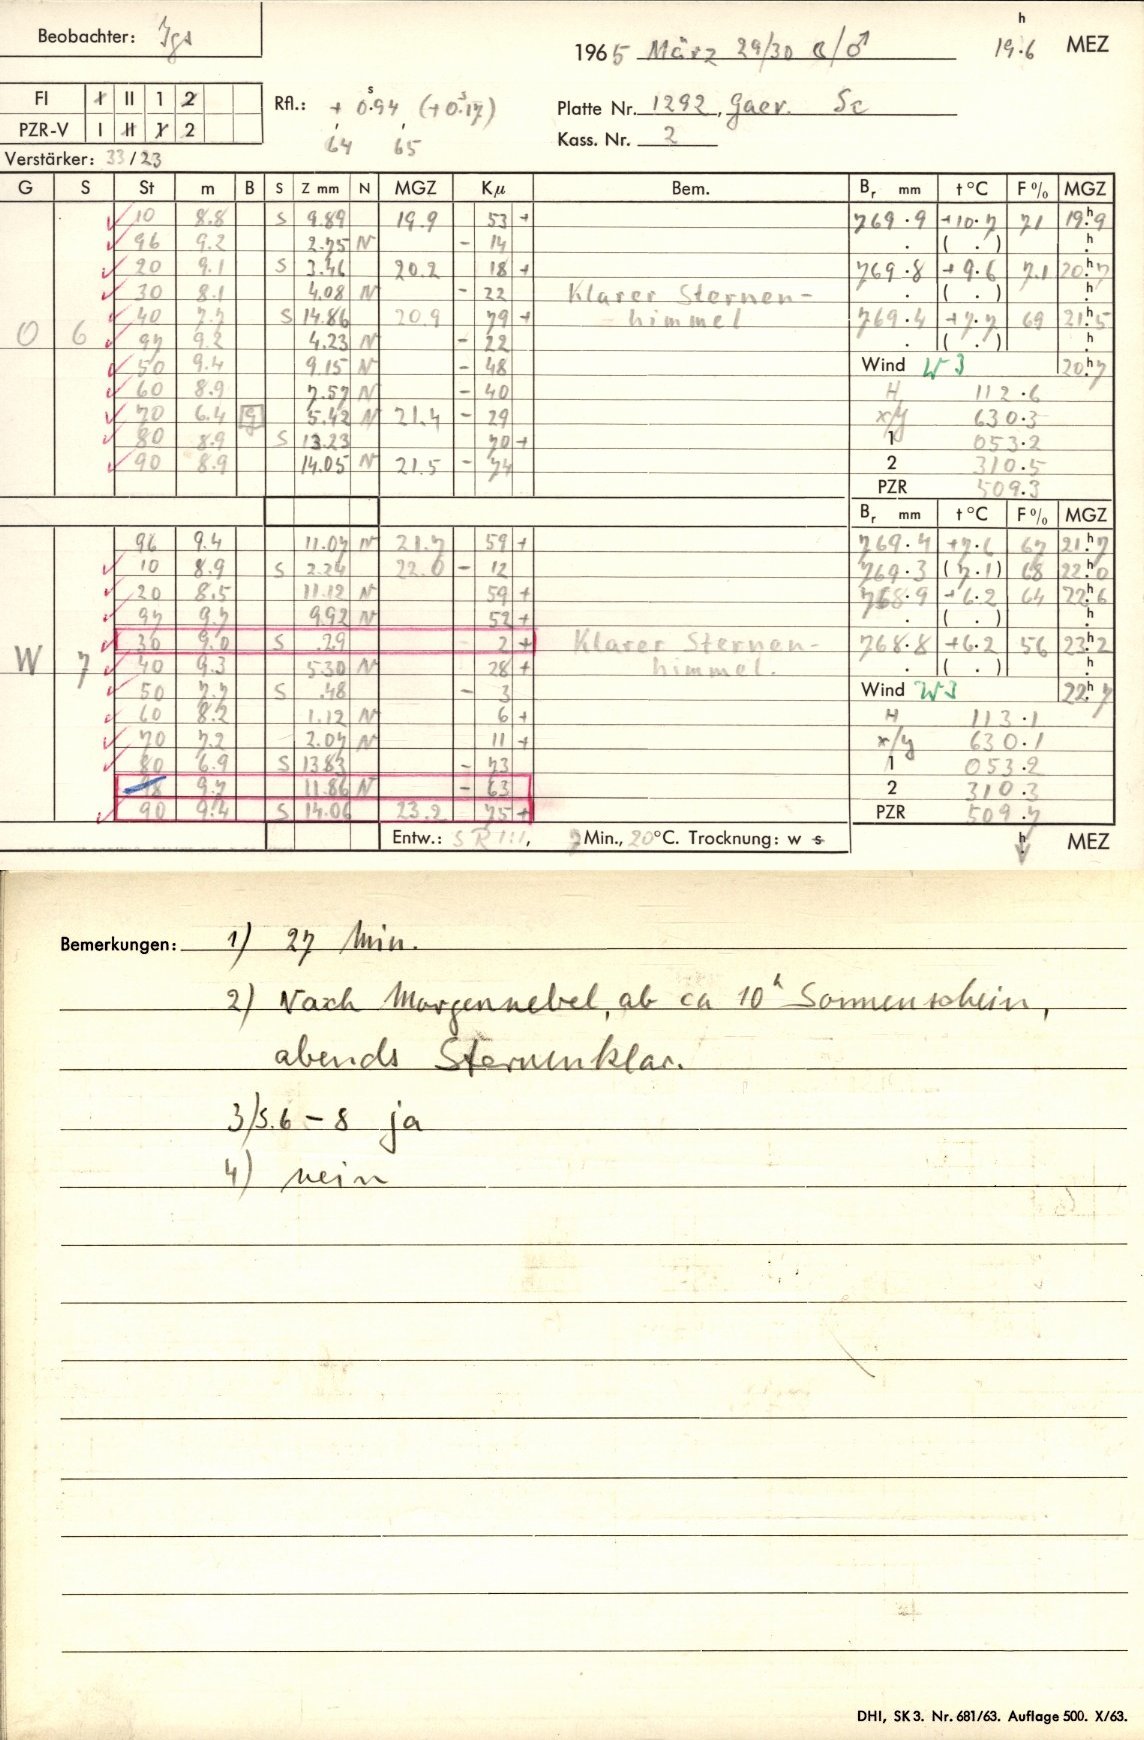 Beobachter: Jgs
1965 März 29/30 ☾/♂ 19h.6 MEZ
FI I II 1 2
PZR-V I II 1 2
Rfl.: + 0s.94 (+0s.17)
64 65
Platte Nr. 1292, Gaev. Sc
Kass. Nr. 2
Verstärker: 33/23
G S St m B S Z mm N MGZ Kμ Bem. Br mm t °C F % MGZ
10 8.8 S 9.89 19.9 53 + 769.9 +10.7 71 19h.9
96 9.2 2.75 N - 14 . ( . ) h.
20 9.1 S 3.46 20.2 18 + 769.8 +9.6 71 20h.7
30 8.1 4.08 N - 22 Klarer Sternen- . ( . ) h.
O 6 40 7.7 S 14.86 20.9 79 + himmel 769.4 +7.7 69 21h.5
97 9.2 4.23 N - 22 . ( . ) h.
50 9.4 9.15 N - 48 Wind W 3 20h.7
60 8.9 7.57 N - 40 H 112.6
70 6.4 g 5.42 N 21.4 - 29 x/y 630.3
80 8.9 S 13.23 70 + 1 053.2
90 8.9 14.05 N 21.5 - 74 2 310.5
PZR 509.3
Br mm t °C F % MGZ
96 9.4 11.07 N 21.7 59 + 769.4 +7.6 67 21h.7
10 8.9 S 2.24 22.0 - 12 769.3 (7.1) 68 22h.0
20 8.5 11.12 N 59 + 768.9 +6.2 64 22h.6
97 9.7 9.92 N 52 + . ( . ) h.
W 7 30 9.0 S .29 - 2 + Klarer Sternen- 768.8 +6.2 56 23h.2
40 9.3 5.30 N 28 + himmel. . ( . ) h.
50 7.7 S .48 - 3 Wind W3 22h.7
60 8.2 1.12 N 6 + H 113.1
70 7.2 2.07 N 11 + x/y 630.1
80 6.9 S 13.83 - 73 1 053.2
98 9.7 11.86 N - 63 2 310.3
90 9.4 S 14.06 23.2 75 + PZR 509.7
Entw.: S R III, 7 Min., 20°C. Trocknung: w s h MEZ
Bemerkungen: 1) 27 Min.
2) Nach Morgennebel, ab ca 10h Sonnenschein,
abends Sternenklar.
3) S.6 – 8 ja
4) nein
DHI, SK 3. Nr. 681/63. Auflage 500. X/63.